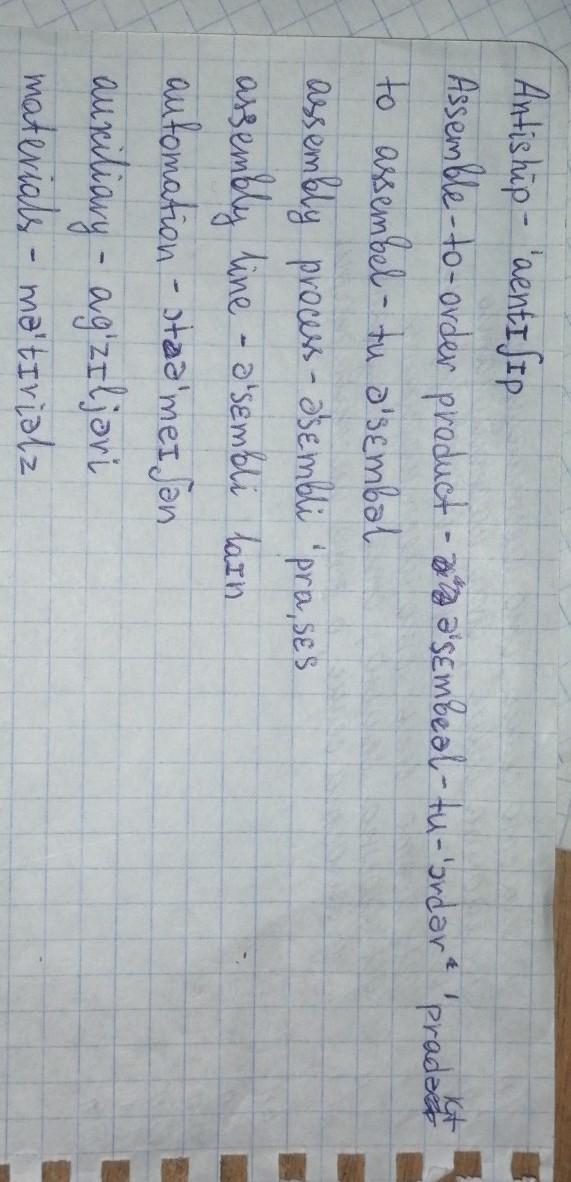 Antiship - 'aentɪʃɪp
Assemble-to-order product - ə'sɛmbeəl-tu-'ɔrdər 'pradəkt
to assembel - tu ə'sɛmbəl
assembly process - ə'sɛmbli 'pra,sɛs
assembly line - ə'sɛmbli laɪn
automation - ɔtə'meɪʃən
auxiliary - ag'zɪljəri
materials - mə'tɪriəlz